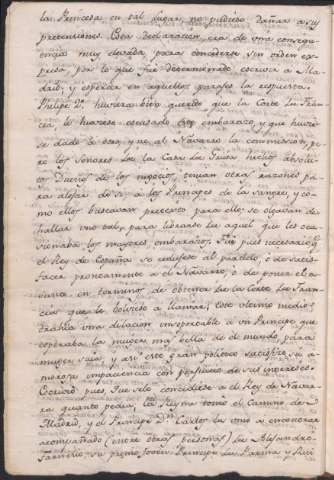 la Princesa en tal lugar, no pudiese dañar a su
pretencion. Esta declaracion era de una conseq
uencia muy elevada para concederse sin orden ex
presa, por lo que fue determinado escrivir a Ma
drid, y esperar en aquellos parajes la respuesta.
Phelipe 2º huviera bien querido que la Corte de Fran
cia, le huviese escusado este embarazo, y que huvie
se dado la orden, que al Navarro la comunicasen, pe
ro los Señores de la Casa de Guisa hechos absolu
tos Dueños de los negocios, tenian otras razones pa
ra alejar de si a los Principes de la sangre, y co
mo ellos buscavan pretexto para ello, se alegravan de
hallar uno tal, para librarse de aquel que les oca
sionaba los mayores embarazos. Fue pues necesario q
el Rey de España se redujese al partido, o de satis
facer prontamente a el Navarro, o de poner el a
sunto en terminos de obtener de la Corte de Fran
cia que le bolviese a llamar; este ultimo medio
una dilacion insoportable a un Principe que
esperaba la muger mas bella de el mundo para
muger suia, y asi este gran politico satisfizo su a
morosa impaciencia con perjuicio de sus intereses.
pues fue de concederse a el Rey de Navar
ra quanto pedia, la Reyna tomó el camino de
Madrid, y el Principe Dn. Carlos la vino a encontrar
acompañado (entre otras personas) de Alejandro
Farnesio, su primo joven Principe de Parma y